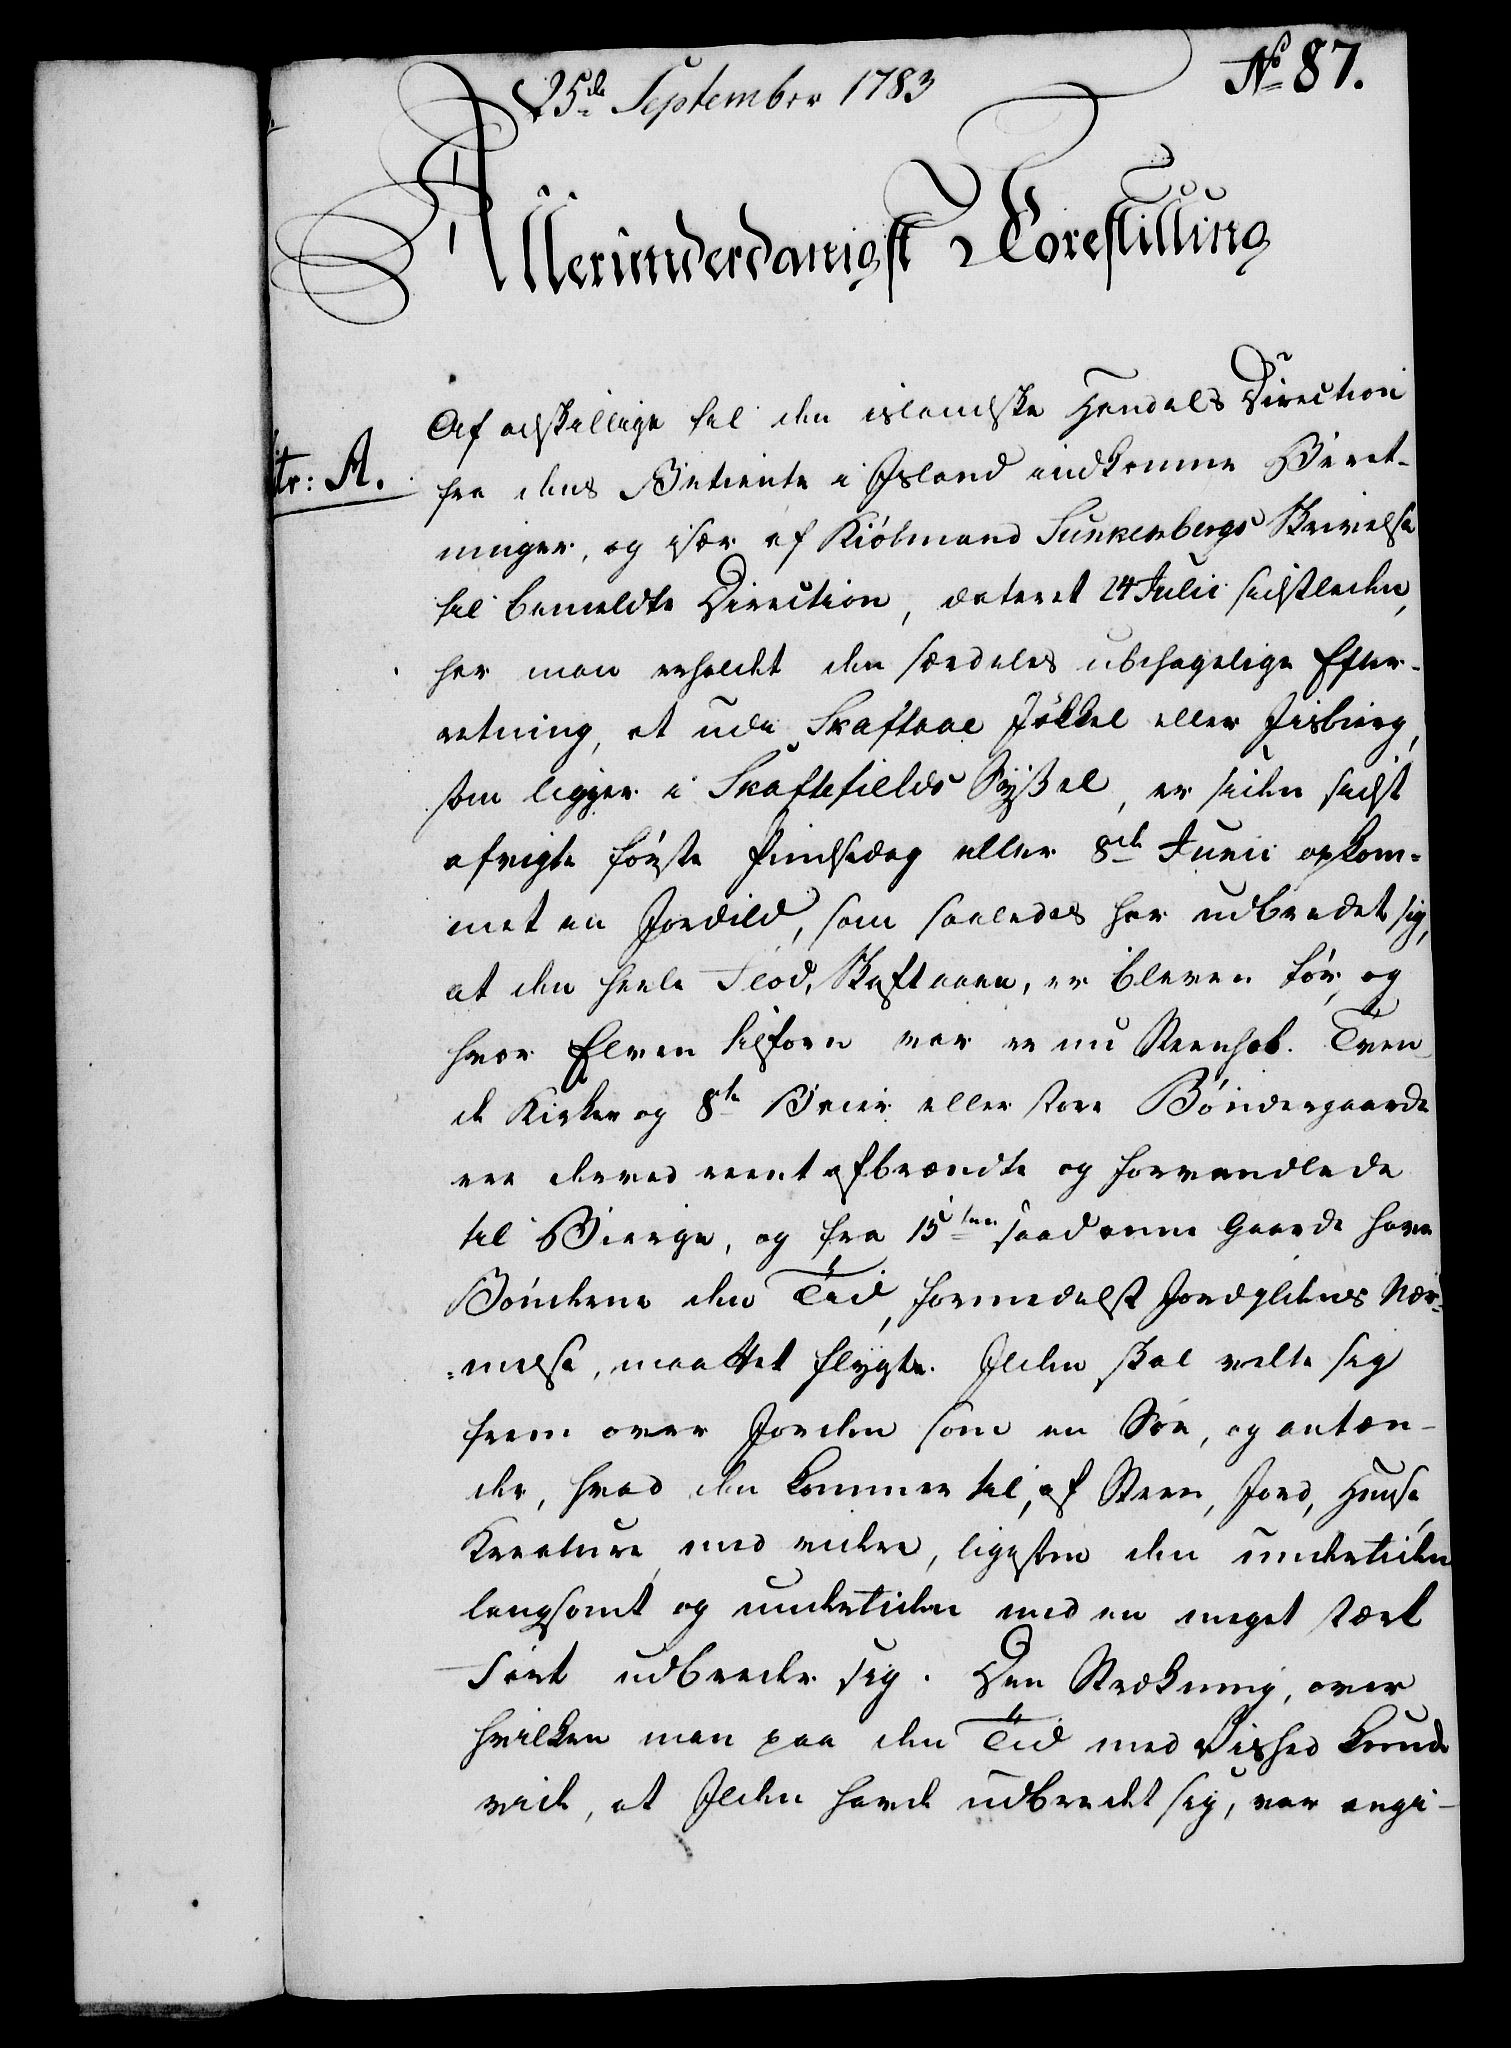 25de September 1783
No 87.
Allerunderdanigst Forestilling
tr: A.
Af adskillige til den islandske Handels Direction
fra dens Betiente i Island indkomne Beret-
ninger, og især af Kiøbmand Sunkenbergs Skrivelse
til bemeldte Direction, dateret 24 Julii sidstleden,
har man erholdt den særdeles ubehagelige Efter-
retning, at udi Skaftaae Jøkkel eller Iisbierg,
som ligger i Skaftefields Syssel, er siden sidst
afvigte første Pindsedag eller 8de Junii opkom-
met en Jordild, som saaledes har udbredet sig,
at den heele Flod, Skaftaaen, er bleven tør, og
hvor Elven tilforn var er nu Steenhob. Tven
de Kirker og 8te Bøier eller store Bøndergaarde
ere derved reent afbrændte og forvandlede
til Bierge, og fra 15ten saadanne Gaarde have
Bønderne den Tid, formedelst Jordildens Nær-
-melse, maattet flygte. Ilden skal velte sig
frem over Jorden som en Søe, og antæn-
der, hvad den kommer til, af Steen, Jord, Huuse,
Kreature, med videre, ligesom den undertiden
langsomt og undertiden med en meget stærk
Fart udbreder sig. Den Strækning, over
hvilken man paa den Tid med Vished kunde
vide, at Ilden havde udbredt sig, var angi-